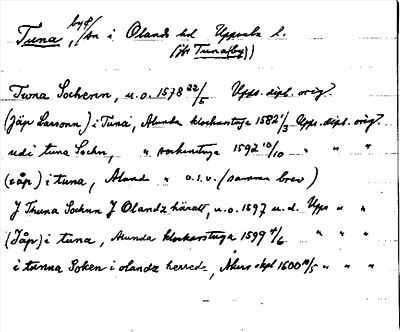 Tuna, by i Olands hd Uppsala l.
(jfr Tuna(by))
Twna Sochenn, u.o. 1578 22/5 Upps. dipl. orig.
(Jäp Larsonn) i Tuna, Alunda klockarstuga 1582 1/3 Upps. dipl. orig.
udi tuna Sochn, " sockenstuga 1592 10/10 " " "
i tuna, Aland " o.s.v. (samma brev)
J Thuna Sochnn J Olandz häratt, u.o. 1597 u.d. Upps " "
(Jäp) i tuna, Alunda klockarstuga 1599 4/6 " " "
i tunna Soken i olandz herred, 1600 " " "